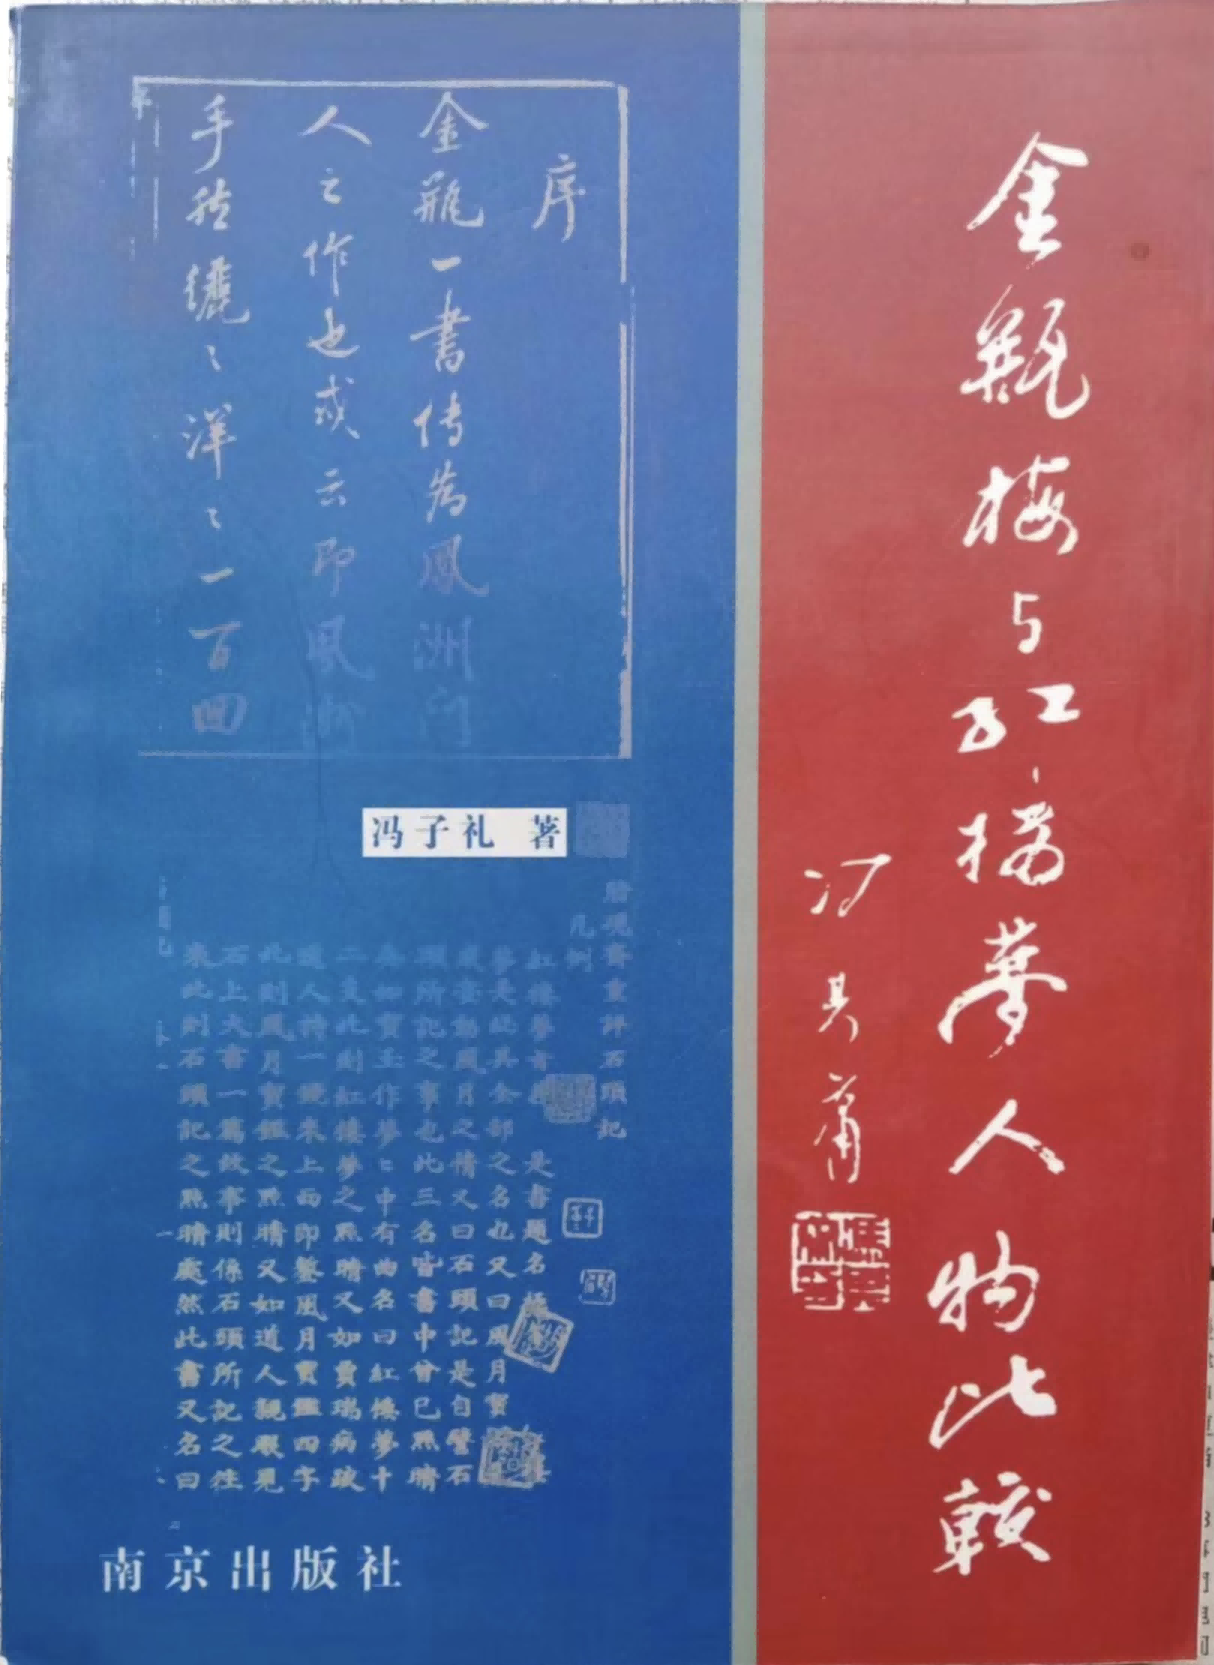 金瓶梅与红楼梦人物比较
冯其庸
序
金瓶一書傳為鳳洲門
人之作也或云即鳳洲
手然纚〻洋〻一百回
冯子礼 著
脂硯齋重評石頭記
凡例
紅樓夢旨義 是書題名極
夢是総其全部之名也又曰風月寶
戒妄動風月之情又曰石頭記是自譬石
頭所記之事也此三名皆書中曾已點睛
矣如寶玉作夢〻中有曲名曰紅樓夢十
二支此則紅樓夢之點睛又如賈瑞病跛
道人持一鏡來上面即鏨風月寶鑑四字
此則風月寶鑑之點睛又如道人親眼見
石上大書一篇故事則係石頭所記之往
來此則石頭記之點睛處然此書又名曰
南京出版社